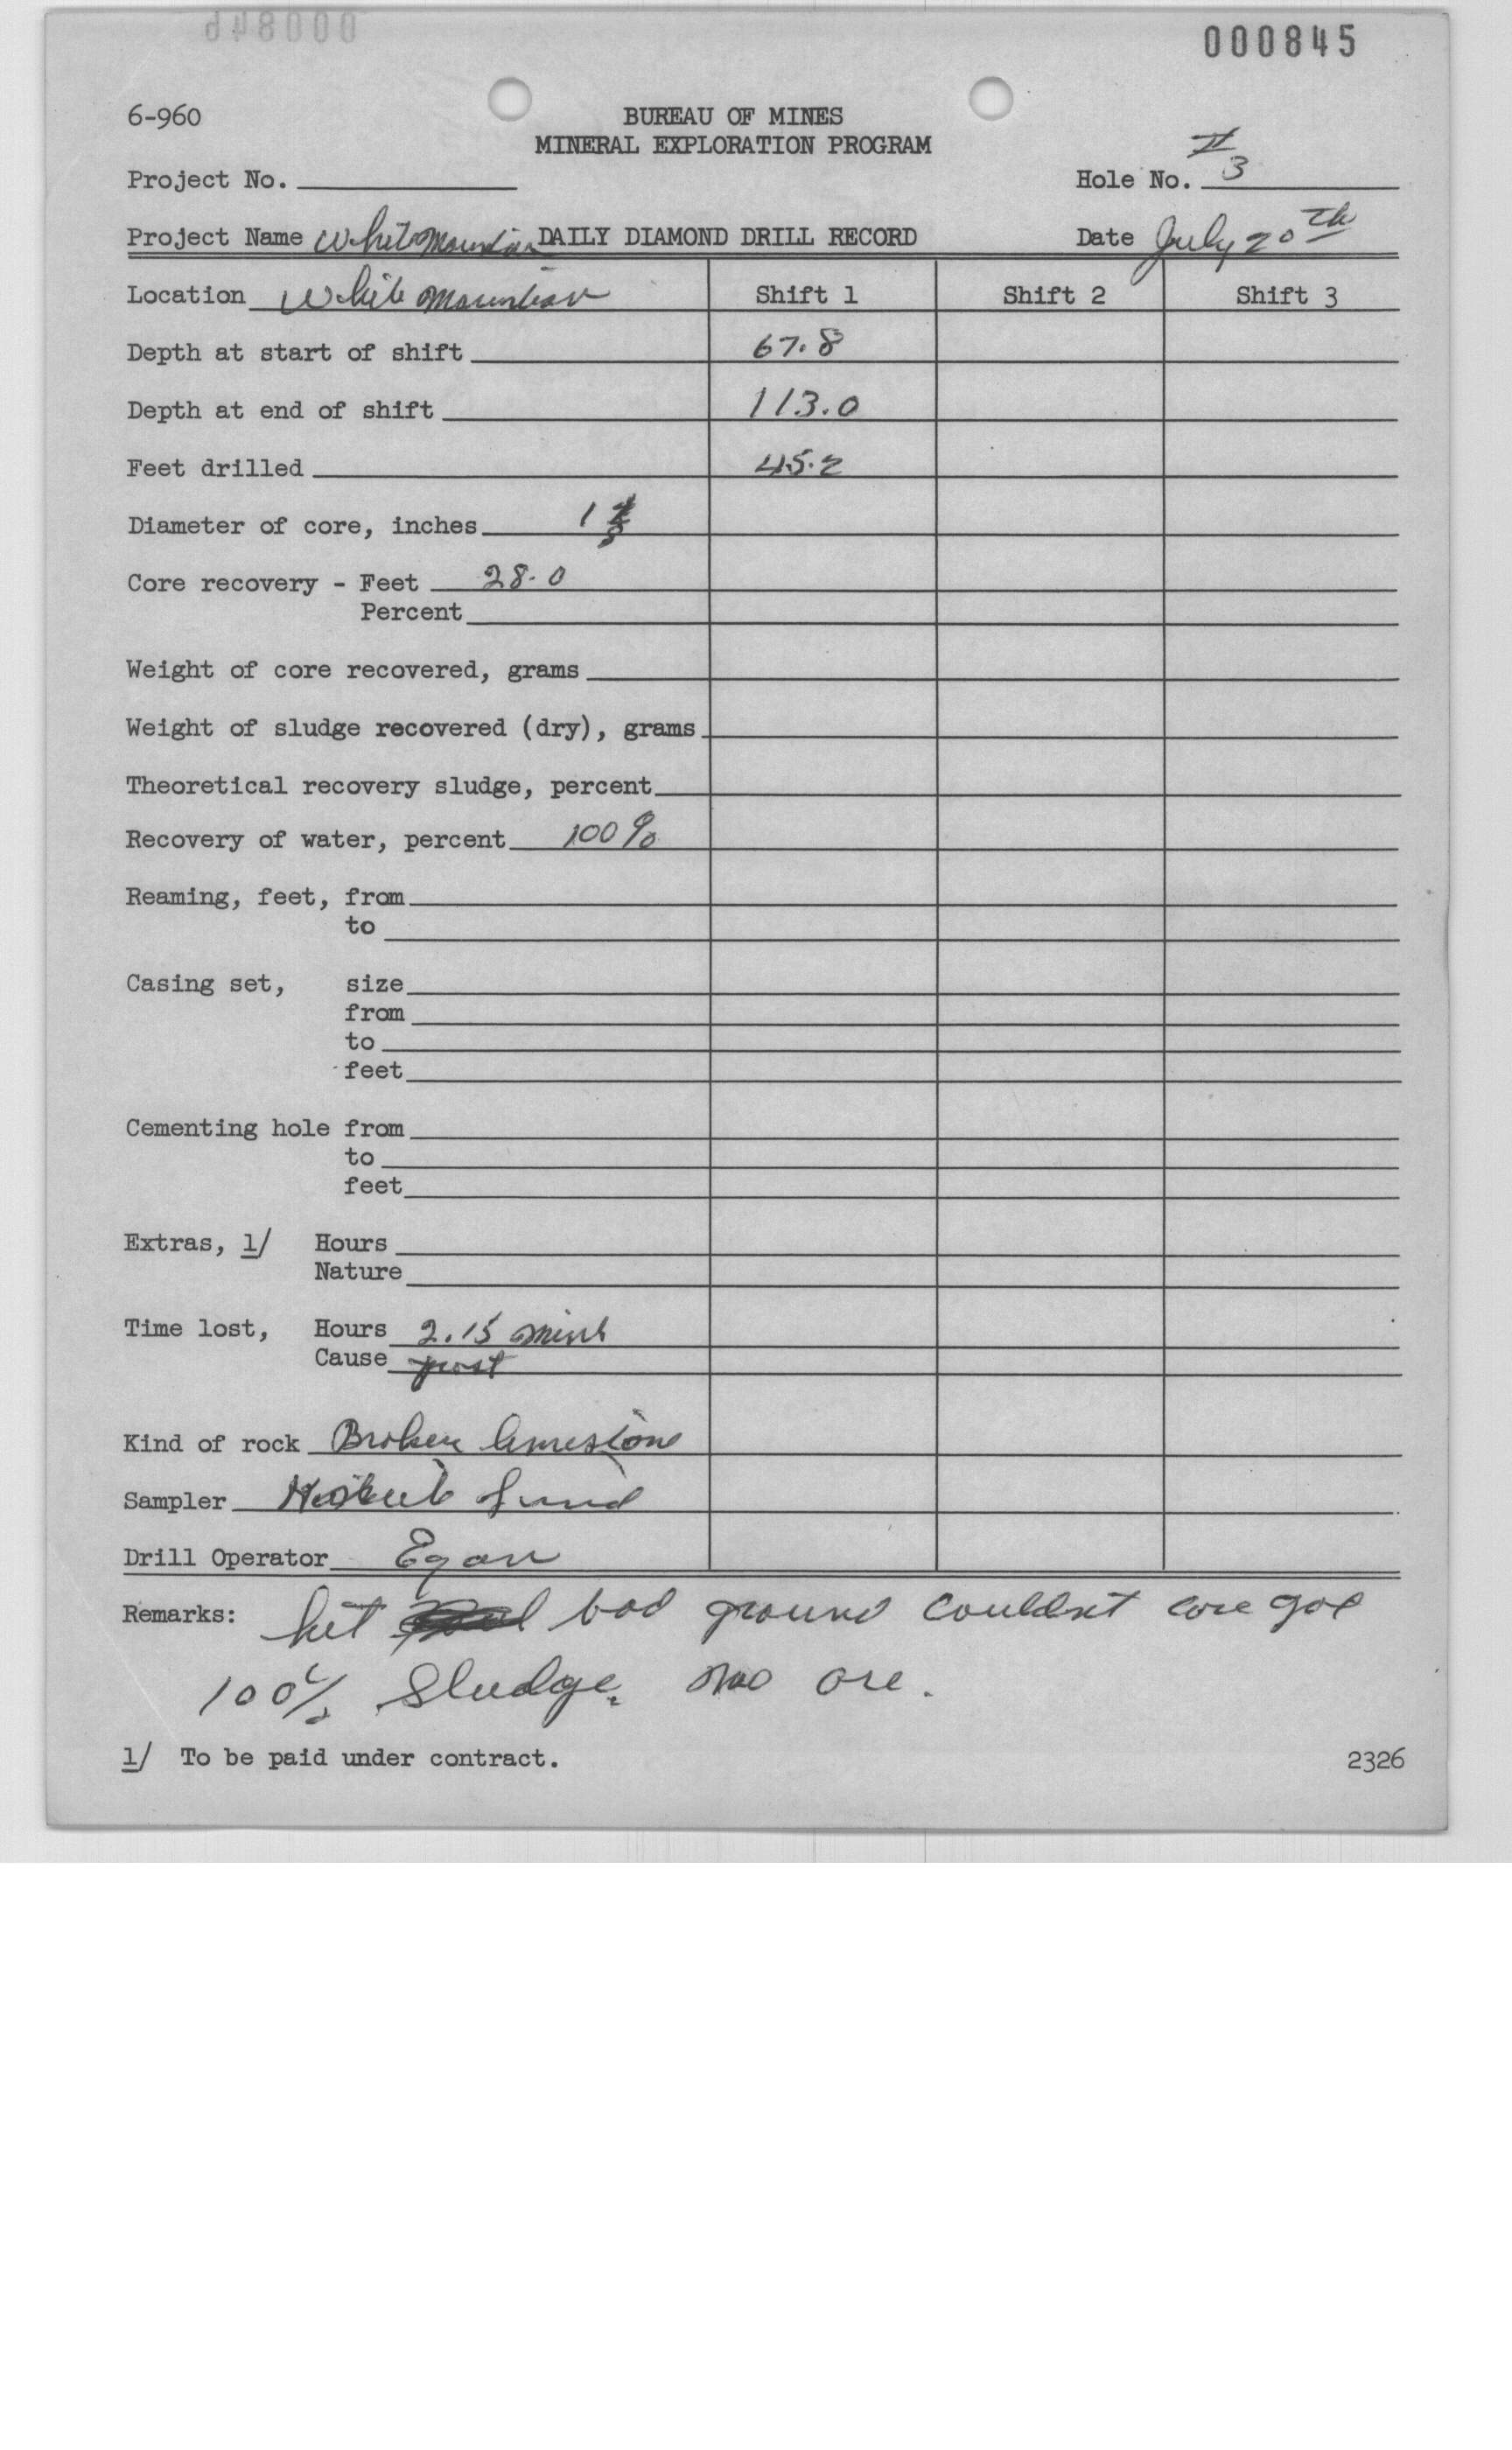 000845
6-960
BUREAU OF MINES
MINERAL EXPLORATION PROGRAM
Project No.
Hole No. # 3
Project Name White Mountain DAILY DIAMOND DRILL RECORD Date July 20th
Location White Mountain Shift 1 Shift 2 Shift 3
Depth at start of shift 67.8
Depth at end of shift 113.0
Feet drilled 45.2
Diameter of core, inches 1
Core recovery - Feet 28.0
Percent
Weight of core recovered, grams
Weight of sludge recovered (dry), grams
Theoretical recovery sludge, percent
Recovery of water, percent 100%
Reaming, feet, from
to
Casing set, size
from
to
feet
Cementing hole from
to
feet
Extras, 1/ Hours
Nature
Time lost, Hours 2.15
Cause
Kind of rock Broken limestone
Sampler
Drill Operator Egan
Remarks: hit bad ground couldnt core got
100% sludge. no ore.
1/ To be paid under contract.
2326